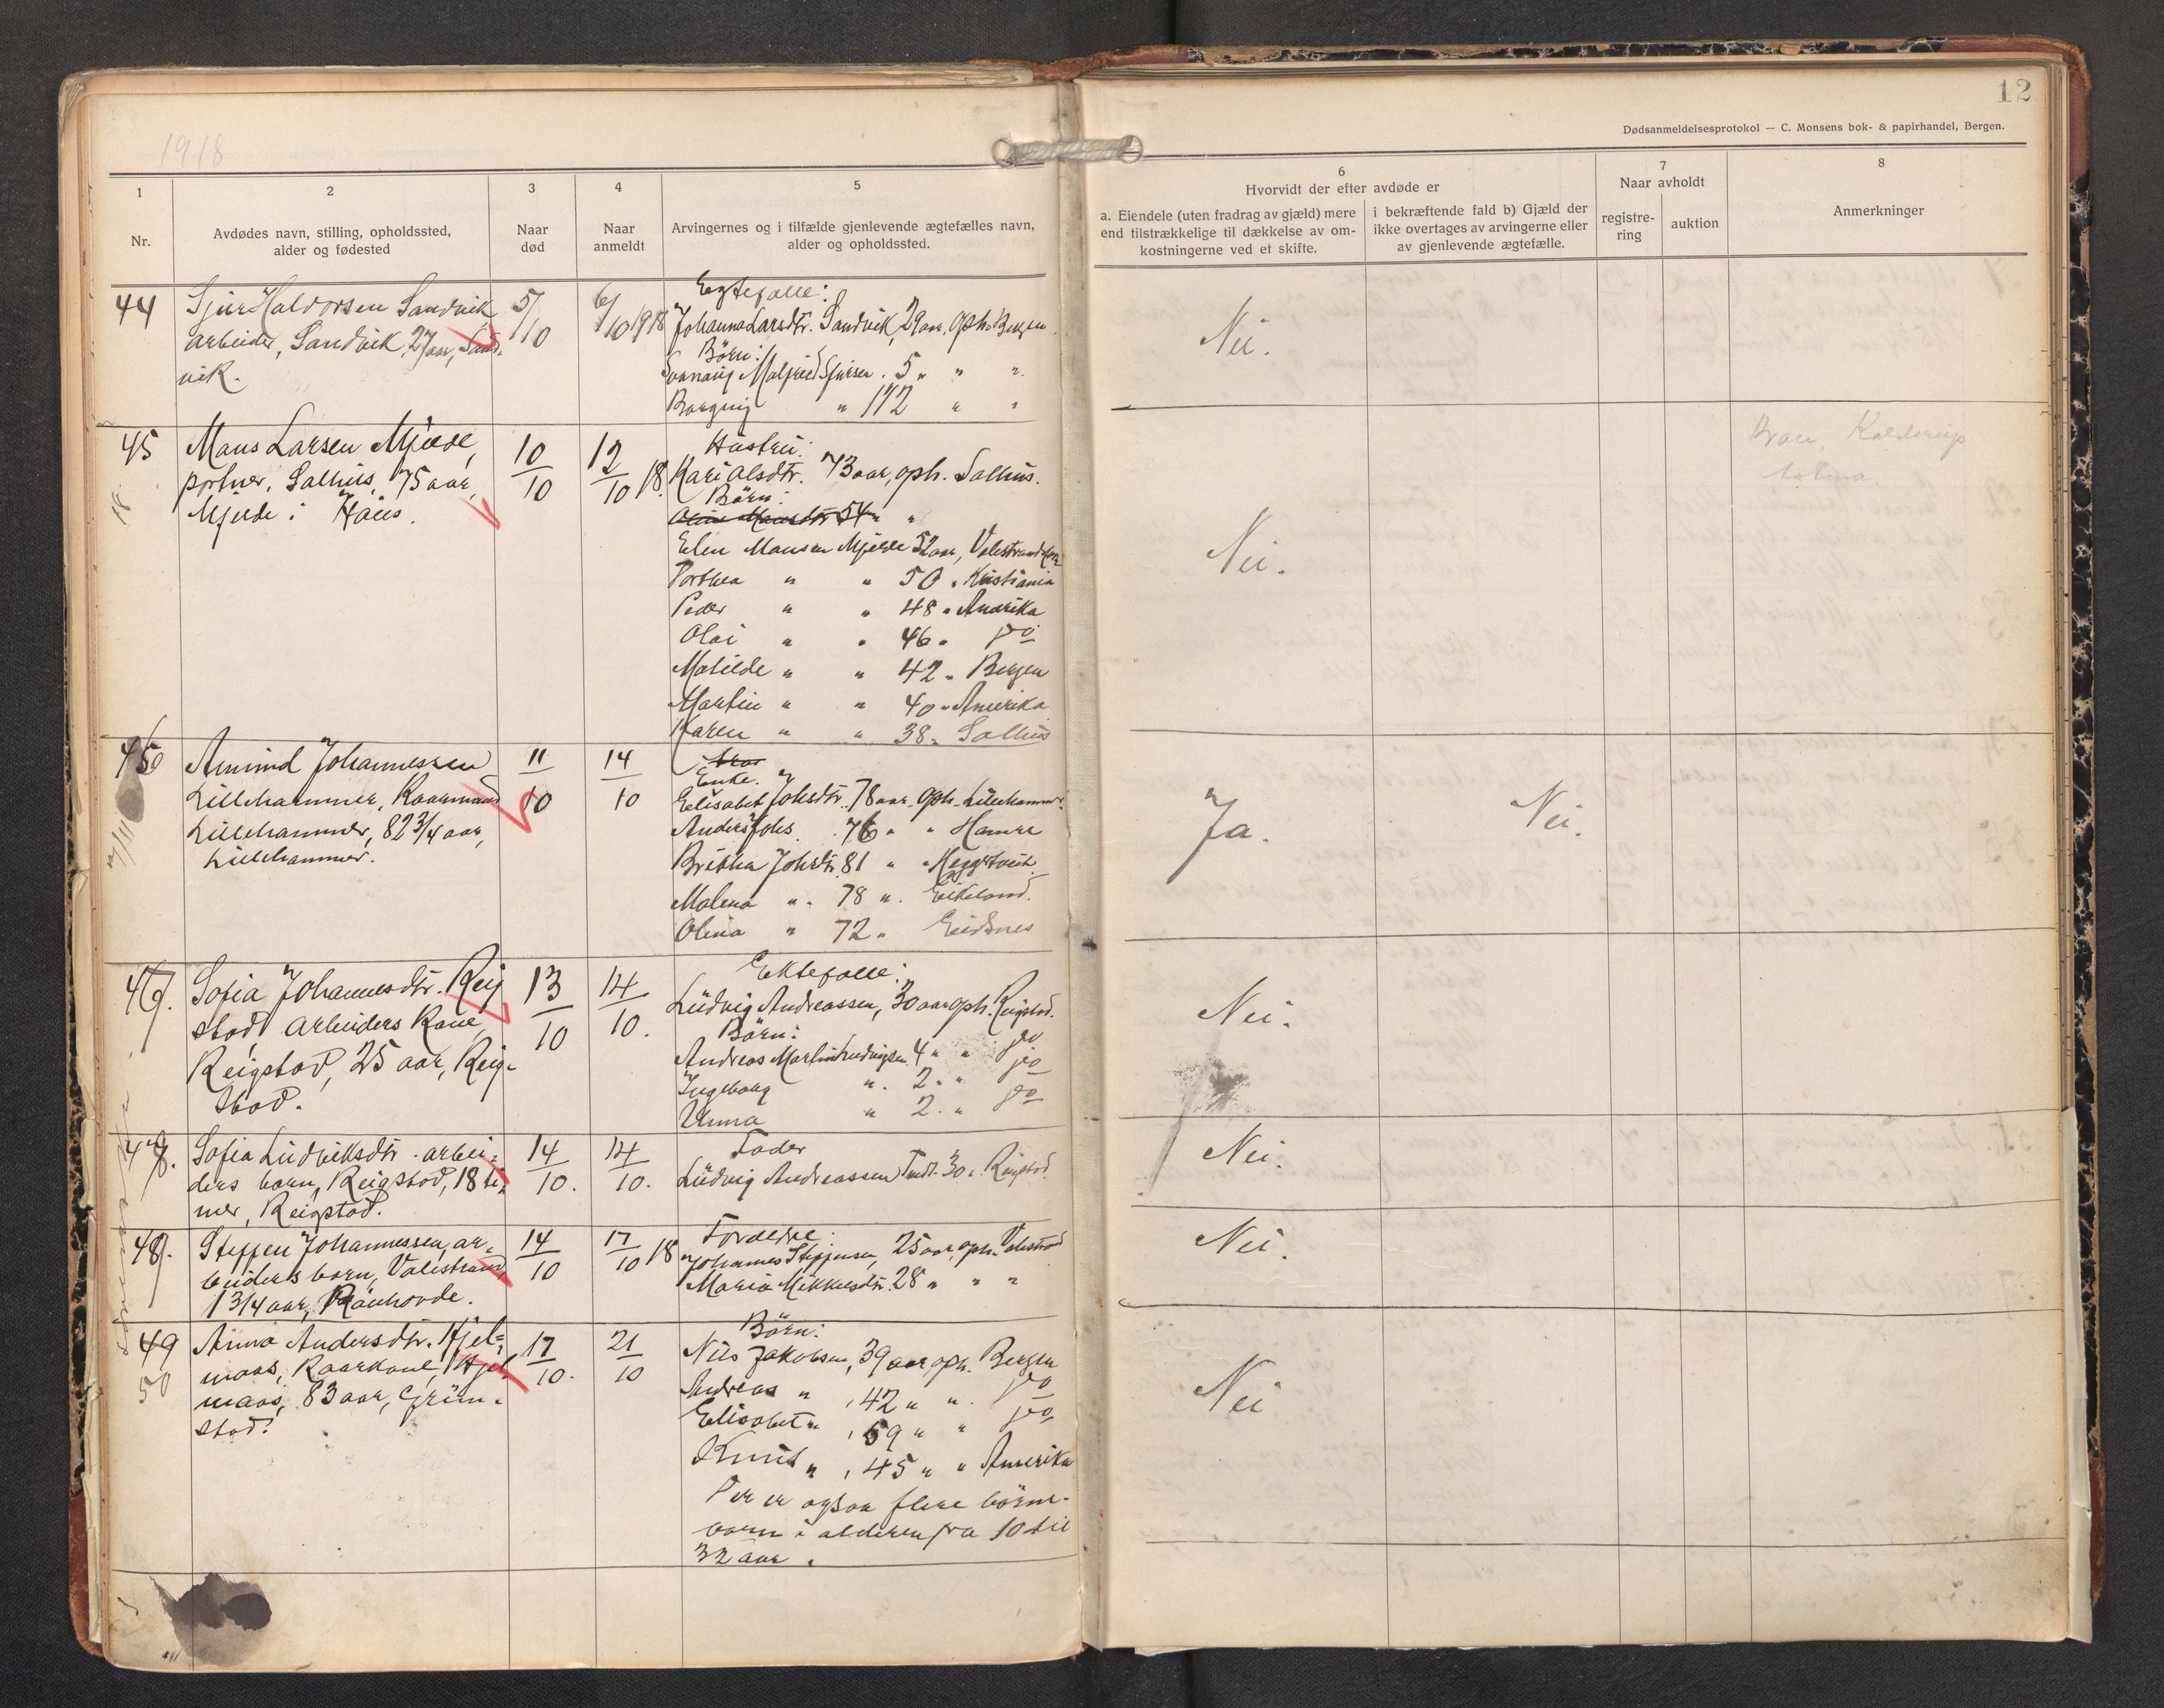 1918
12
Dødsanmeldelsesprotokol — C. Monsens bok- & papirhandel, Bergen.
1
Nr.
2
Avdødes navn, stilling, opholdssted,
alder og fødested
3
Naar
død
4
Naar
anmeldt
5
Arvingernes og i tilfælde gjenlevende ægtefælles navn,
alder og opholdssted.
6
Hvorvidt der efter avdøde er
a. Eiendele (uten fradrag av gjæld) mere
end tilstrækkelige til dækkelse av om-
kostningerne ved et skifte.
i bekræftende fald b) Gjæld der
ikke overtages av arvingerne eller
av gjenlevende ægtefælle.
7
Naar avholdt
registre-
ring
auktion
8
Anmerkninger
44
Sjur Haldorsen Sandvik
arbeider, Sandvik, 27 aar, Sand-
vik.
5/10
6/10 1918
Egtefælle:
Johanna Larsdtr. Sandvik, 29 aar, oph. Bergen
Børn:
Malfried Sjursen . 5 " " "
Borgny " 1 1/2 " "
Nei.
45
Mans Larsen Mjelde,
portner, Salhus, 75 aar,
Mjelde i Haus.
10/10
12/10 18
Hustru:
Kari Olsdtr. 73 aar, oph. Salhus.
Børn:
Mansdtr 54 " "
Elen Mansen Mjelde 52 aar, Valestrand
Dorthea " " 50 " Kristiania
Peder " " 48 " Amerika
Olai " " 46 " do
Matilde " " 42 " Bergen
Martin " " 40 " Amerika
Karen " " 38 " Salhus
Nei.
46
Amund Johannessen
Lillehammer, Kaarmand
Lillehammer, 82 3/4 aar,
Lillehammer.
11/10
14/10
Enke.
Elisabet Johsdtr. 78 aar oph. Lillehammer
Anders Johs. 76 " " Hamre
Britha Johsdtr. 81 " " Heggstveit
Malena " " 78 " . Eikeland.
Olina " 72 " Eidsnes
Ja.
Nei.
47.
Sofia Johannesdtr. Reig
stad, arbeiders kone,
Reigstad, 25 aar, Reig-
stad.
13/10
14/10.
Ektefælle:
Ludvig Andreassen, 30 aar oph. Reigstad.
Børn:
Andreas Martin Ludvigsen 4 " " do
Ingeborg " . 2 . " do
Anna " 2 . " do
Nei.
Sofia Ludviksdtr. arbei-
ders barn, Reigstad, 18 ti-
mer, Reigstad.
14/10.
14/10.
Fader
Ludvig Andreassen 30 " Reigstad
Nei.
48.
Steffen Johannessen, ar-
beiders barn, Valestrand,
1 3/4 aar, Rånhovde.
14/10
17/10 18
Foreldre:
Johannes Steffensen, 25 aar, oph. Valestrand
Maria Mikkelsdtr. 28 " " "
Nei.
49
50
Anna Andersdtr. Hjel-
maas, Kaarkone, Hjel
maas, 83 aar, Grim-
stad.
17/10.
21/10
Børn:
Nils Jakobsen, 39 aar oph. Bergen
Andreas " , 42 " " . do
Elisabet " , 59 " " do
Knut " , 45 " " Amerika
Der er ogsaa flere børne-
barn i alderen fra 10 til
32 aar .
Nei